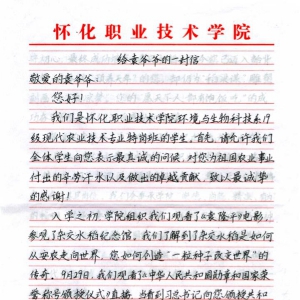 怀化职业技术学院
给袁爷爷的一封信
敬爱的袁爷爷
您好!
我们是怀化职业技术学院环境与生物科技系19
级现代农业技术专业特岗班的学生。首先,请允许我们
全体学生向您表示最真诚的问候,对您为祖国农业事业
付出的辛劳汗水以及做出的卓越贡献,致以最诚挚
的感谢!
入学之初,学院组织我们观看了《袁隆平》电影,
参观了杂交水稻纪念馆,我们了解到了杂交水稻是如何
从安农走向世界,您如何创造“一粒种子改变世界”的
传奇。9月29日,我们观看《中华人民共和国勋章和国家荣
誉称号颁授仪式》直播,当看到习总书记为您颁授共和